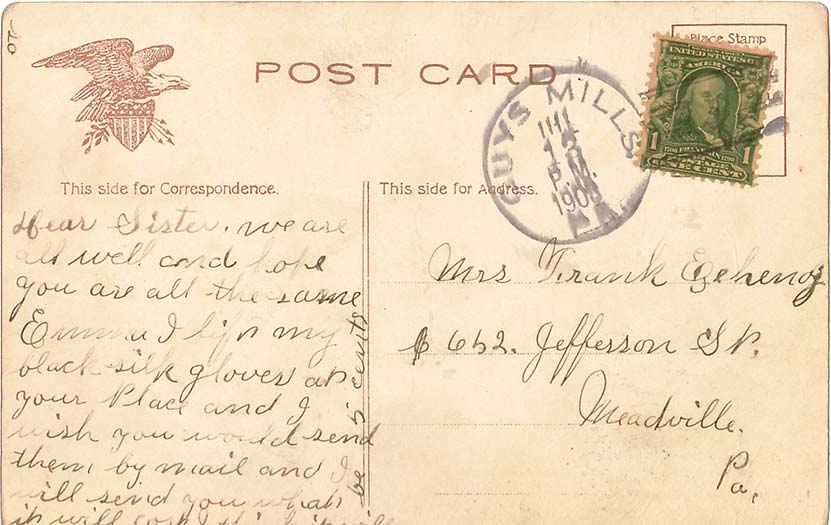 POST CARD
Place Stamp
UNITED STATES OF
AMERICA
FRANKLIN
1 1
POSTAGE
ONE CENT
GUYS MILLS,
P.M.
PA.
This side for Correspondence.
This side for Address.
Dear Sister. we are
all well and hope
you are all the same
Emma I left my
black silk gloves at
your Place and I
wish you would send
them by mail and I
will send you what
it will cost
cents
be
Mrs Frank
652. Jefferson St.
Meadville.
Pa.